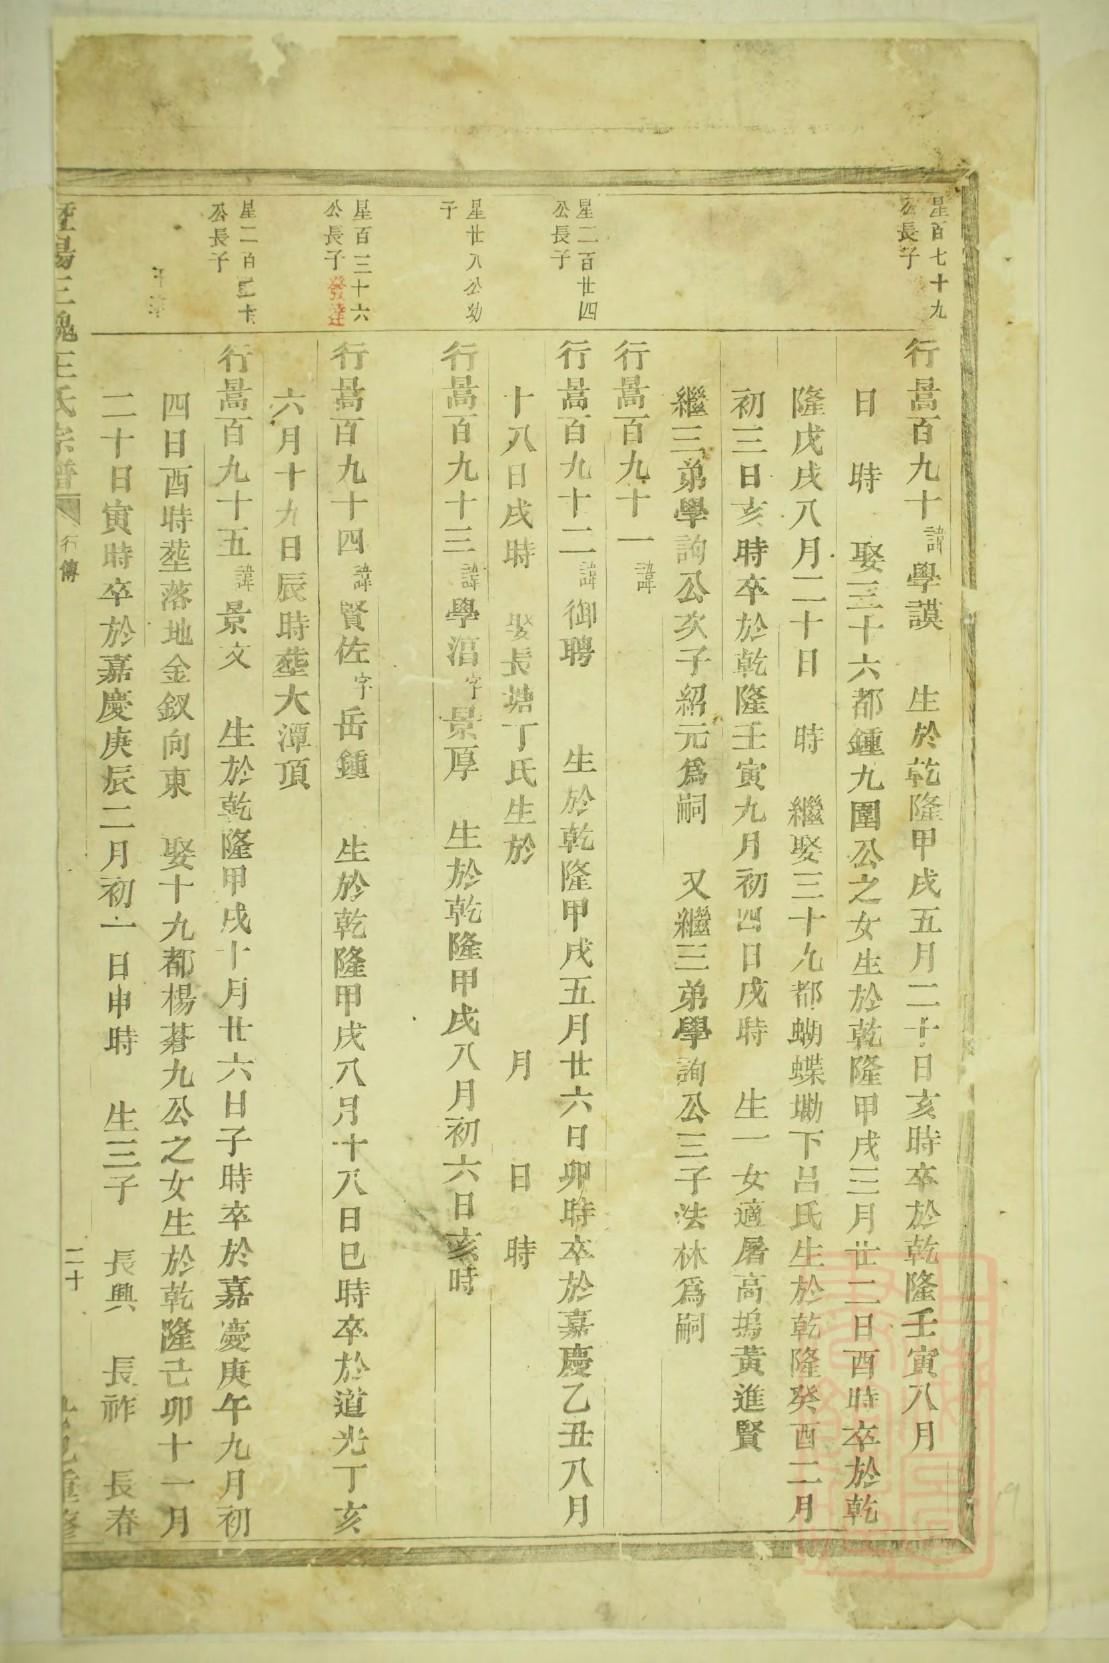 星百七十九
公長子
行暠百九十諱學謨 生於乾隆甲戌五月二十日亥時卒於乾隆壬寅八月
日 時 娶三十六都鍾九圍公之女生於乾隆甲戌三月廿二日酉時卒於乾
隆戊戌八月二十日 時 繼娶三十九都蝴蝶墈下呂氏生於乾隆癸酉二月
初三日亥時卒於乾隆壬寅九月初四日戌時 生一女適屠高塢黃進賢
繼三弟學詢公次子紹元爲嗣 又繼三弟學詢公三子法林爲嗣
行暠百九十一諱
星二百廿四
公長子
行暠百九十二諱御聘 生於乾隆甲戌五月廿六日卯時卒於嘉慶乙丑八月
十八日戌時 娶長塘丁氏生於 月 日 時
星廿八公幼
子
行暠百九十三諱學滔字景厚 生於乾隆甲戌八月初六日亥時
星百三十六
公長子發達
行暠百九十四諱賢佐字岳鍾 生於乾隆甲戌八月十八日巳時卒於道光丁亥
六月十九日辰時塟大潭頂
星二百三十
公長子
行暠百九十五諱景文 生於乾隆甲戌十月廿六日子時卒於嘉慶庚午九月初
四日酉時塟落地金釵向東 娶十九都楊若九公之女生於乾隆己卯十一月
二十日寅時卒於嘉慶庚辰二月初一日申時 生三子 長興 長祚 長春
暨陽三槐王氏宗譜 行傳 二十 重修